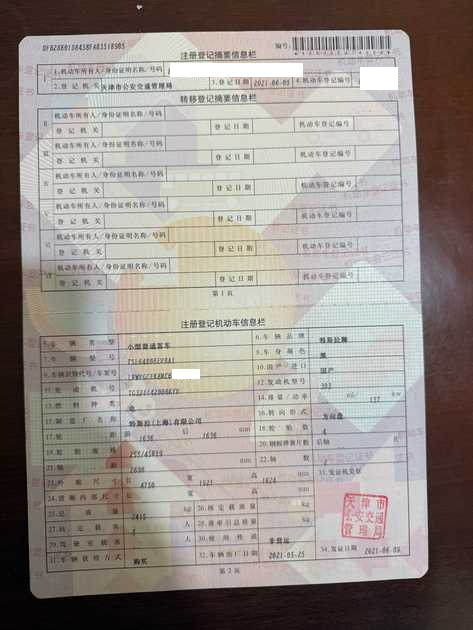 编号:
注册登记摘要信息栏
I 1.机动车所有人/身份证明名称/号码
2.登记机关 天津市公安交通管理局 3.登记日期 2021-06-09 4.机动车登记编号
转移登记摘要信息栏
II 机动车所有人/身份证明名称/号码
登记机关 登记日期 机动车登记编号
III 机动车所有人/身份证明名称/号码
登记机关 登记日期 机动车登记编号
IV 机动车所有人/身份证明名称/号码
登记机关 登记日期 机动车登记编号
V 机动车所有人/身份证明名称/号码
登记机关 登记日期 机动车登记编号
VI 机动车所有人/身份证明名称/号码
登记机关 登记日期 机动车登记编号
VII 机动车所有人/身份证明名称/号码
登记机关 登记日期 机动车登记编号
第1页
注册登记机动车信息栏
5.车辆类型 小型普通客车 6.车辆品牌 特斯拉牌
7.车辆型号 8.车身颜色 黑
9.车辆识别代号/车架号 10.国产/进口 国产
11.发动机号 12.发动机型号
13.燃料种类 电 14.排量/功率 ml/ 137 kw
15.制造厂名称 特斯拉(上海)有限公司 16.转向形式 方向盘
17.轮距 前 1636 后 1636 mm 18.轮胎数 4
19.轮胎规格 255/45R19 20.钢板弹簧片数 后轴
21.轴距 mm 22.轴数 2
23.外廓尺寸 长 4750 宽 1921 高 1624 mm 33.发证机关章
24.货厢内部尺寸 长 宽 高 mm
25.总质量 2415 kg 26.核定载质量 kg
27.核定载客 5 人 28.准牵引总质量 kg
29.驾驶室载客 人 30.使用性质 非营运
31.车辆获得方式 购买 32.车辆出厂日期 2021-05-25 34.发证日期 2021-06-09
天津市
公安交通
管理局
第2页